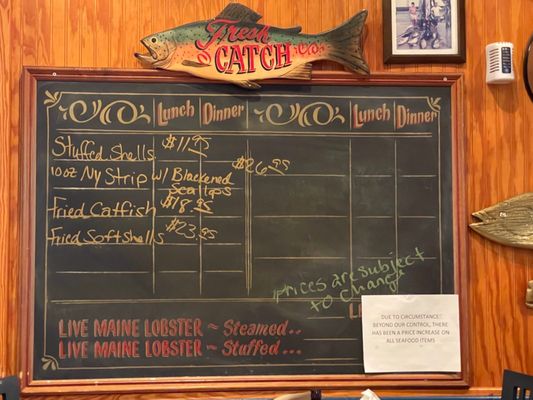 Fresh
CATCH
Lunch Dinner Lunch Dinner
Stuffed Shells $11.95
10oz NY Strip w/ Blackened $26.95
Scallops
Fried Catfish $18.95
Fried Softshells $23.95
Prices are subject
to change
LIVE MAINE LOBSTER ~ Steamed...
LIVE MAINE LOBSTER ~ Stuffed...
DUE TO CIRCUMSTANCE
BEYOND OUR CONTROL, THERE
HAS BEEN A PRICE INCREASE ON
ALL SEAFOOD ITEMS